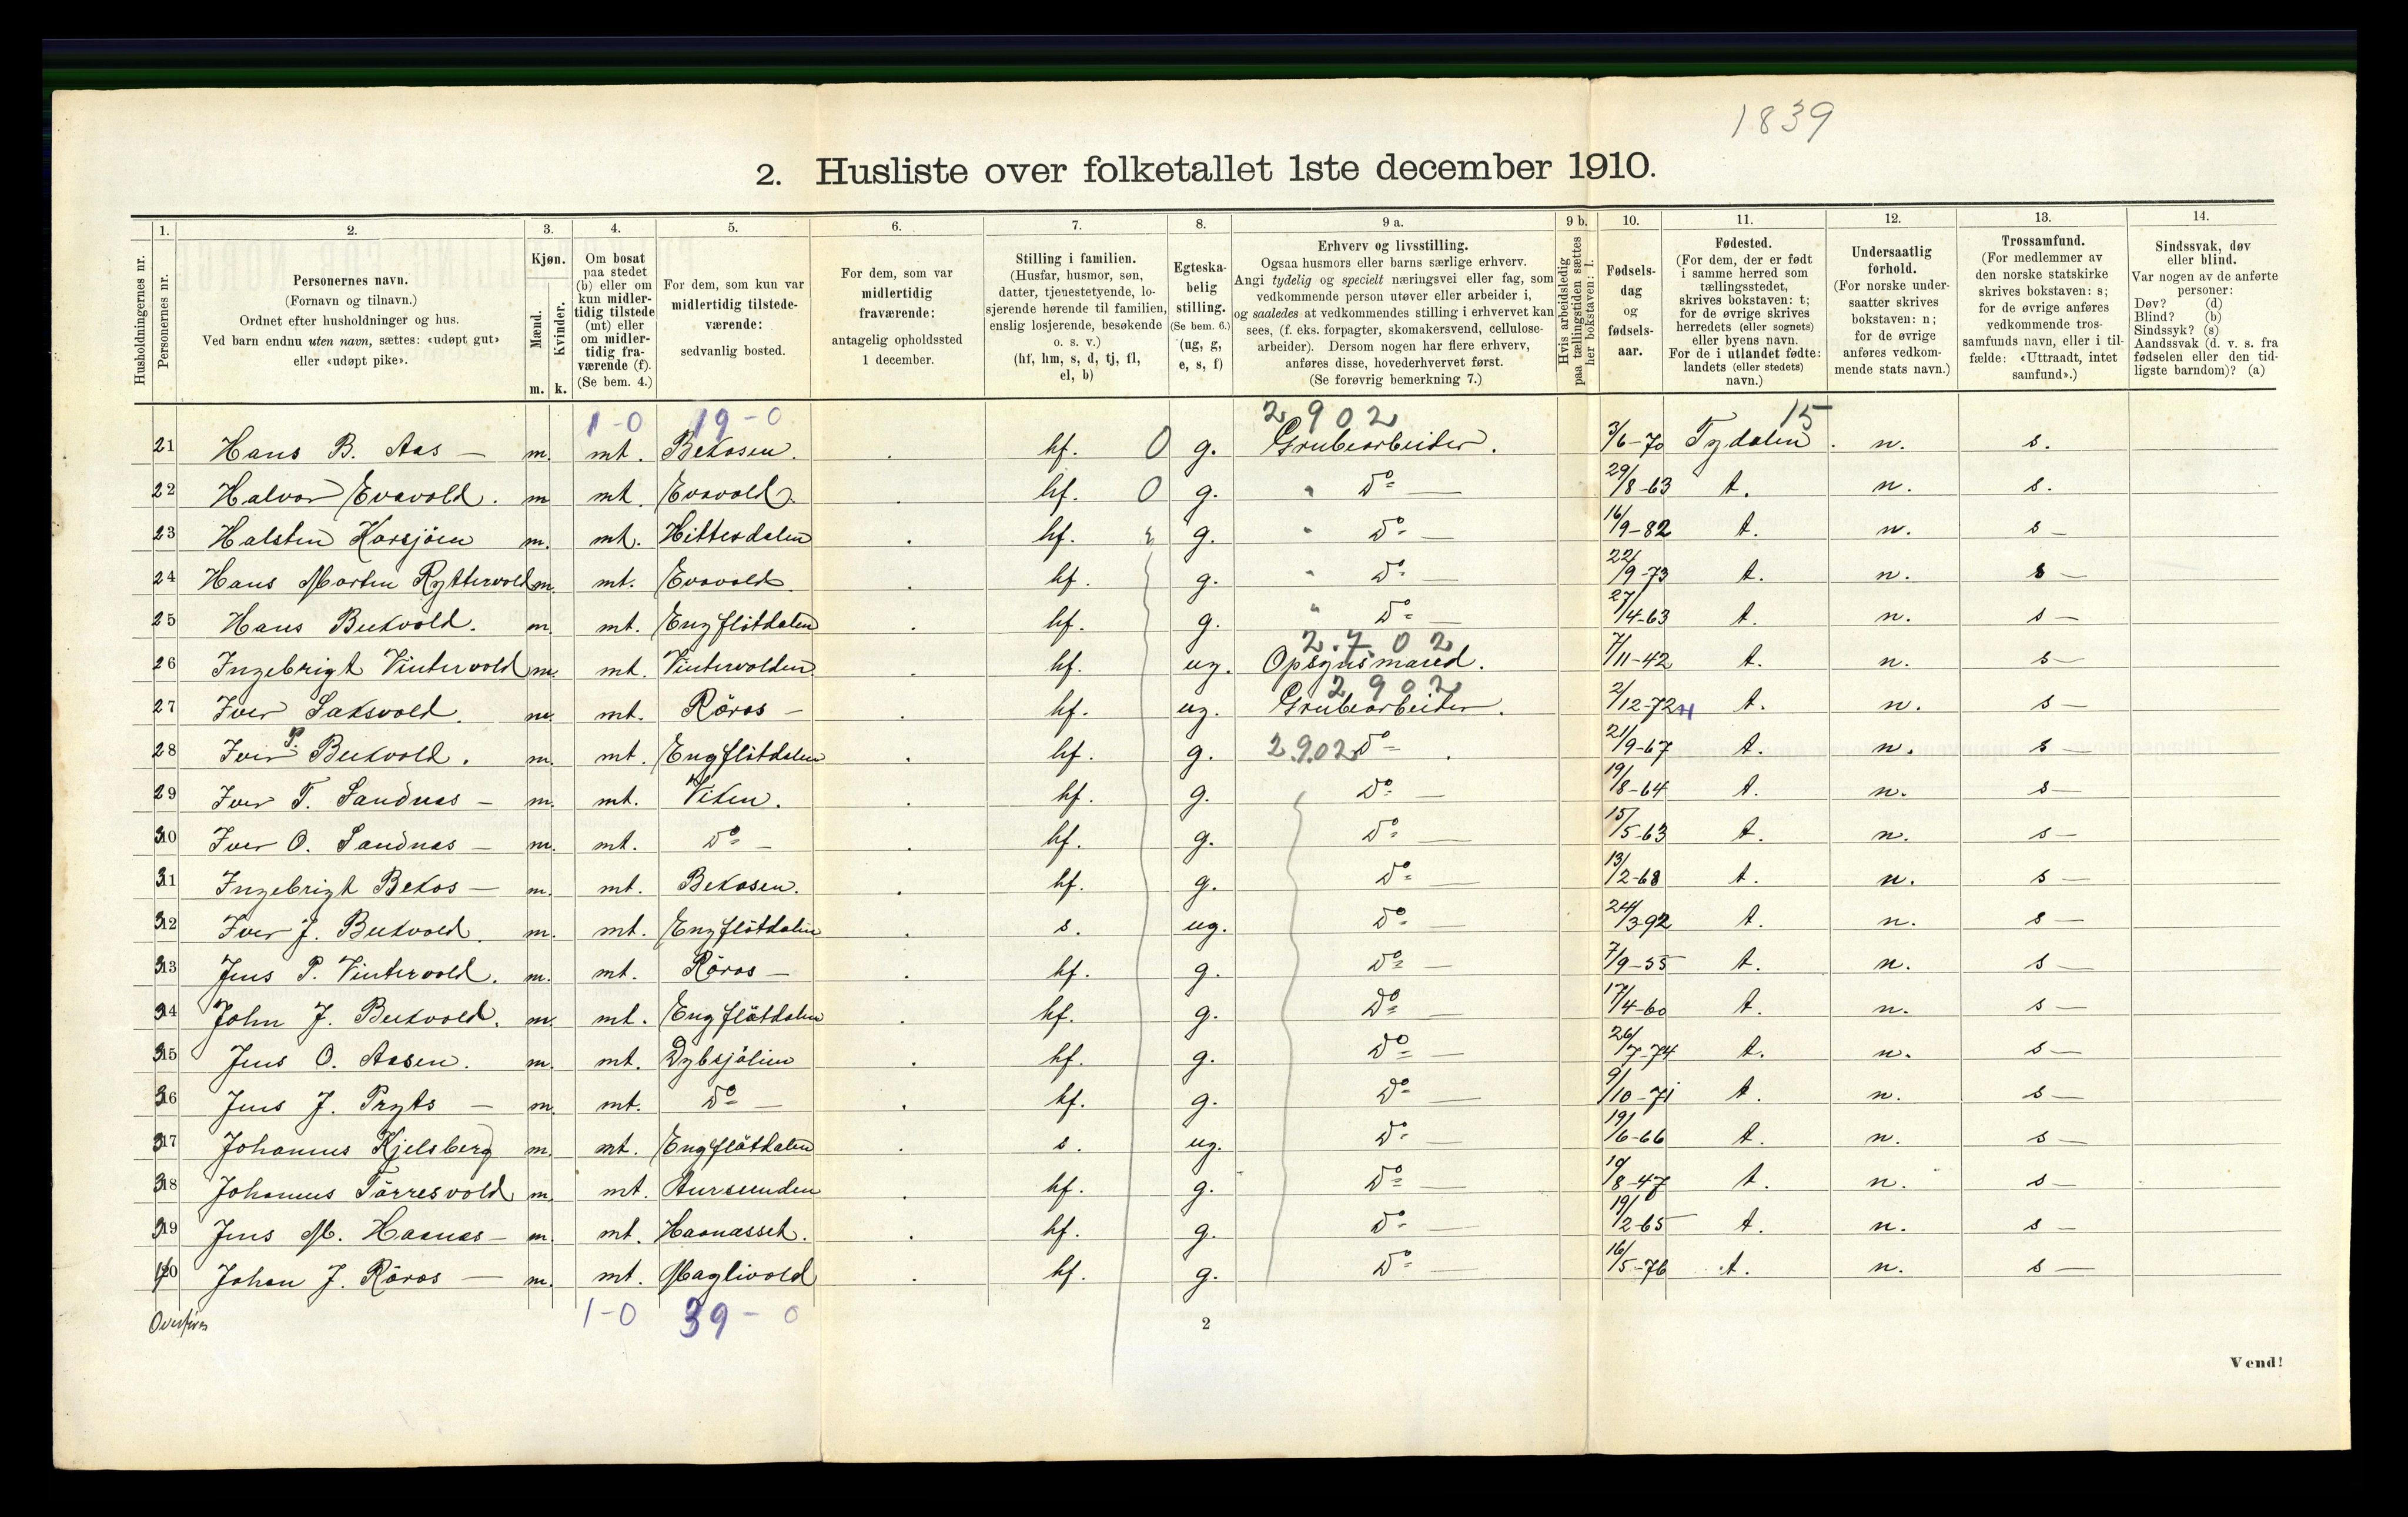 1839
2. Husliste over folketallet 1ste december 1910.
Husholdningernes nr.
1. Personernes nr.
2. Personernes navn. (Fornavn og tilnavn.) Ordnet efter husholdninger og hus. Ved barn endnu uten navn, sættes: «udøpt gut» eller «udøpt pike».
3. Kjøn. Mænd. m. Kvinder. k.
4. Om bosat paa stedet (b) eller om kun midlertidig tilstede (mt) eller om midlertidig fraværende (f). (Se bem. 4.)
5. For dem, som kun var midlertidig tilstedeværende: sedvanlig bosted.
6. For dem, som var midlertidig fraværende: antagelig opholdssted 1 december.
7. Stilling i familien. (Husfar, husmor, søn, datter, tjenestetyende, losjerende hørende til familien, enslig losjerende, besøkende o. s. v.) (hf, hm, s, d, tj, fl, el, b)
8. Egteskabelig stilling. (Se bem. 6.) (ug, g, e, s, f)
9 a. Erhverv og livsstilling. Ogsaa husmors eller barns særlige erhverv. Angi tydelig og specielt næringsvei eller fag, som vedkommende person utøver eller arbeider i, og saaledes at vedkommendes stilling i erhvervet kan sees, (f. eks. forpagter, skomakersvend, cellulosearbeider). Dersom nogen har flere erhverv, anføres disse, hovederhvervet først. (Se forøvrig bemerkning 7.)
9 b. Hvis arbeidsledig paa tællingstiden sættes her bokstaven: l.
10. Fødselsdag og fødselsaar.
11. Fødested. (For dem, der er født i samme herred som tællingsstedet, skrives bokstaven: t; for de øvrige skrives herredets (eller sognets) eller byens navn. For de i utlandet fødte: landets (eller stedets) navn.)
12. Undersaatlig forhold. (For norske undersaatter skrives bokstaven: n; for de øvrige anføres vedkommende stats navn.)
13. Trossamfund. (For medlemmer av den norske statskirke skrives bokstaven: s; for de øvrige anføres vedkommende trossamfunds navn, eller i tilfælde: «Uttraadt, intet samfund».)
14. Sindssvak, døv eller blind. Var nogen av de anførte personer: Døv? (d) Blind? (b) Sindssyk? (s) Aandssvak (d. v. s. fra fødselen eller den tidligste barndom)? (a)
1-0 19-0 2902 15
21 Hans B. Aas — m. mt. Bekosen. hf. 0 g. Grubearbeider. 3/6-70 Tydalen. n. s.
22 Halvor Evavold. m mt. Evavold. hf. 0 g. " Do — 29/8-63 t. n. s.
23 Halsten Korsjöen m. mt. Hittesdalen hf. g. " Do — 16/9-82 t. n. s —
24 Hans Morten Ryttervold m. mt. Evavold. hf. g. " Do — 22/9-73 t. n. s —
25 Hans Bukvold. m. mt. Engflötdalen hf. g. " Do — 27/4-63 t. n. s —
2.702
26 Ingebrigt Vintervold m. mt. Vintervolden hf. ug. Opsynsmand. 7/11-42 t. n. s —
2902
27 Iver Saksvold. m. mt. Röros — hf. ug. Grubearbeider. 2/12-72 t. n. s —
28 Iver P. Bukvold. m. mt. Engflötdalen hf. g. 2.902 Do. 21/9-67 t. n. s —
29 Iver T. Sandnes — m. mt. Viken. hf. g. Do — 19/8-64 t. n. s —
30 Iver O. Sandnes — m. mt. Do — hf. g. Do — 15/5-63 t. n. s —
31 Ingebrigt Bekos — m. mt. Bekosen. hf. g. Do — 13/2-68 t. n. s —
32 Iver J. Bukvold. m. mt. Engflötdalen s. ug. Do — 24/3-92 t. n. s —
33 Jens P. Vintervold. m. mt. Röros — hf. g. Do — 7/9-55 t. n. s —
34 John J. Bukvold. m. mt. Engflötdalen hf. g. Do 17/4-60 t. n. s —
35 Jens O. Aasen. m. mt. Dybsjölien hf. g. Do — 26/7-74 t. n. s —
36 Jens J. Pryts — m. mt. Do — hf. g. Do — 9/10-71 t. n. s —
37 Johannes Kjelsberg m. mt. Engflötdalen s. ug. Do — 19/6-66 t. n. s —
38 Johannes Törresvold m. mt. Aursunden hf. g. Do — 19/8-47 t. n. s —
39 Jens M. Haanes — m. mt. Haanasset. hf. g. Do — 19/2-65 t. n. s —
40 Johan J. Röros — m. mt. Maglivold hf. g. Do — 16/5-76 t. n. s —
Overføres 1-0 39-0
2
Vend!